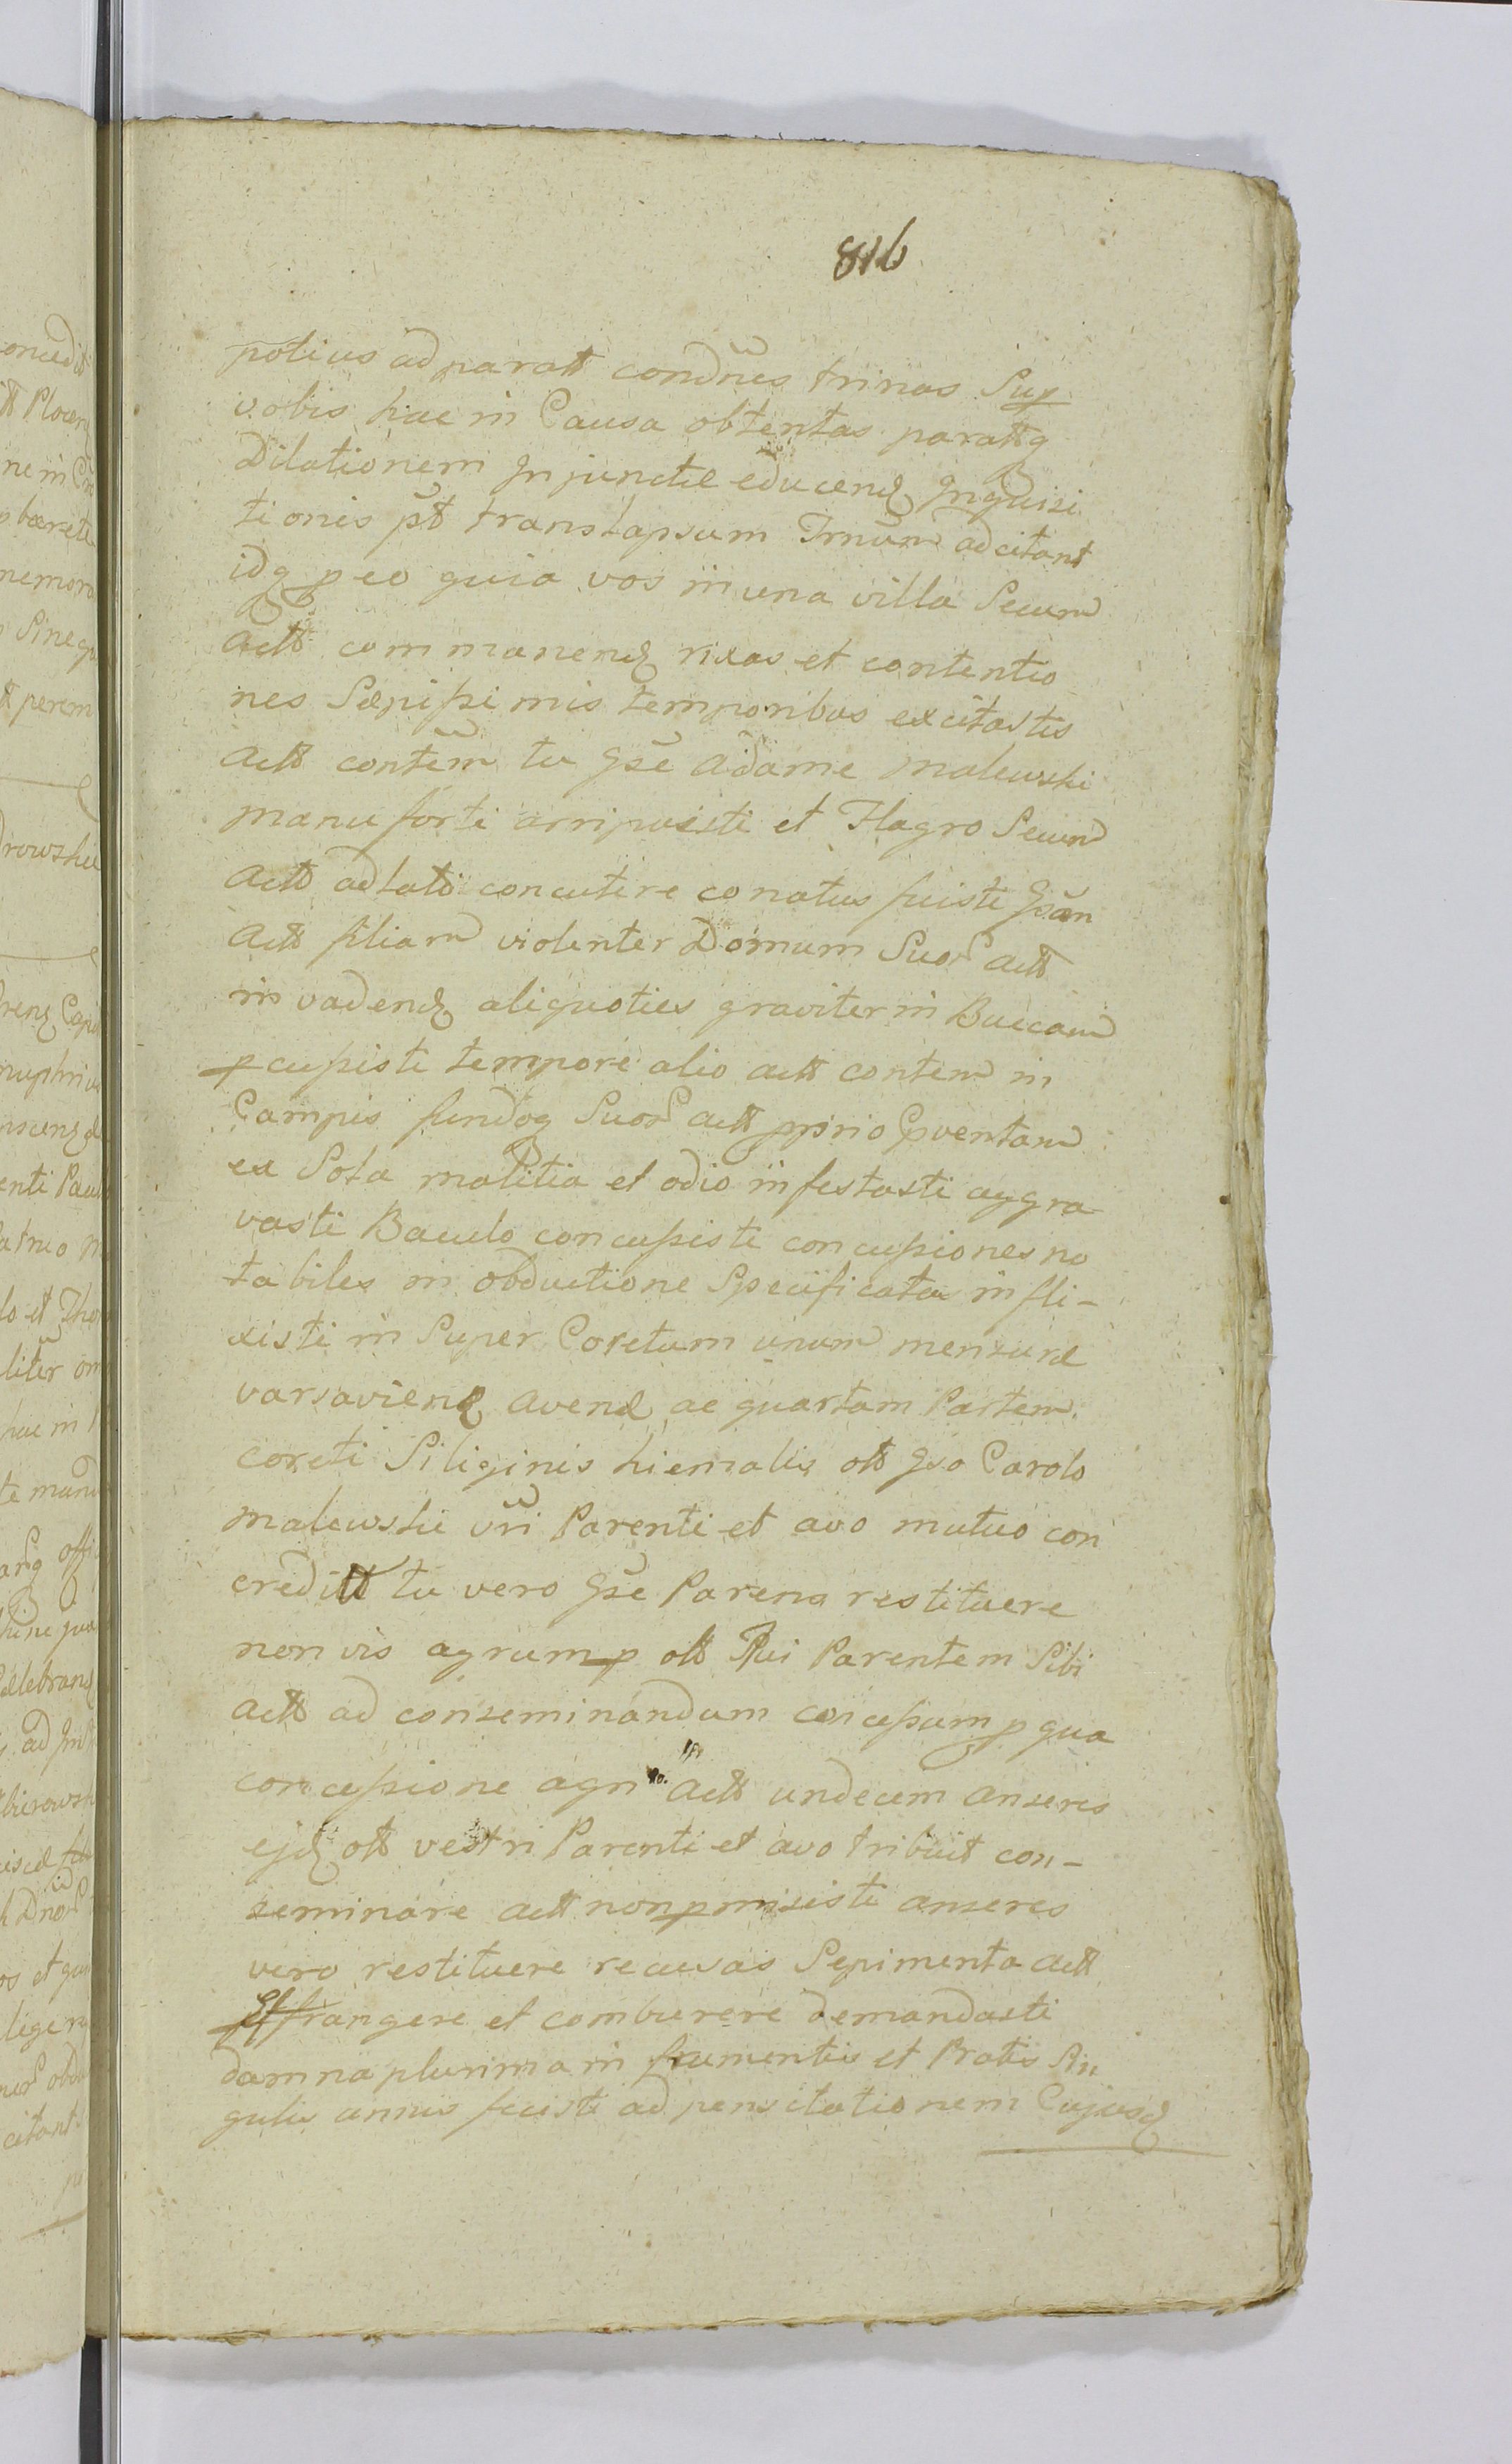 816
potius ad paratt condnes trinas Sup
vobis hac in Causa obtentas parattq
Dilationem Injunctæ educend Inquisi
tionis pt translapsum Trnum adcitant
idq p eo quia vos in una villa Secum
Actt commanend rixas et contentio
nes Sæpissimis temporibus excitastis
Actt contem tu Gse Adame Malewski
manu forti arripuisti et Flagro Secum
Actt adlato concutere conatus fuisti Gsam
Actt filiam violenter Domum Suor actt
invadend aliquoties graviter in Buccam
pcussisti tempore alio actt contem in
Campis fundoq Suor actt pprio Cpventam
ex Sola malitia et odio infestasti aggra
vasti Baculo concussisti concussiones no
tabiles in obductione Specificatas infli-
xisti in Super Coretum unum mensuræ
varsaviens avenæ ac quartam Partem
coreti Siliginis hiemalis ott Gso Carolo
Malewski vri Parenti et avo mutuo con
creditt tu vero Gse Parens restituere
non vis agrum p ott Tui Parentem Sibi
actt ad conseminandum concessum p qua
concessione agri actt undecem anseres
ejd ott vestri Parenti et avo tribuit con-
seminare actt non pmisisti anseres
vero restituere recusas Sepimenta actt
Effrangere et comburere demandasti
damna plurima in frumentis et Pratis Sin
gulis annis fecisti ad pensitationem Cujusd